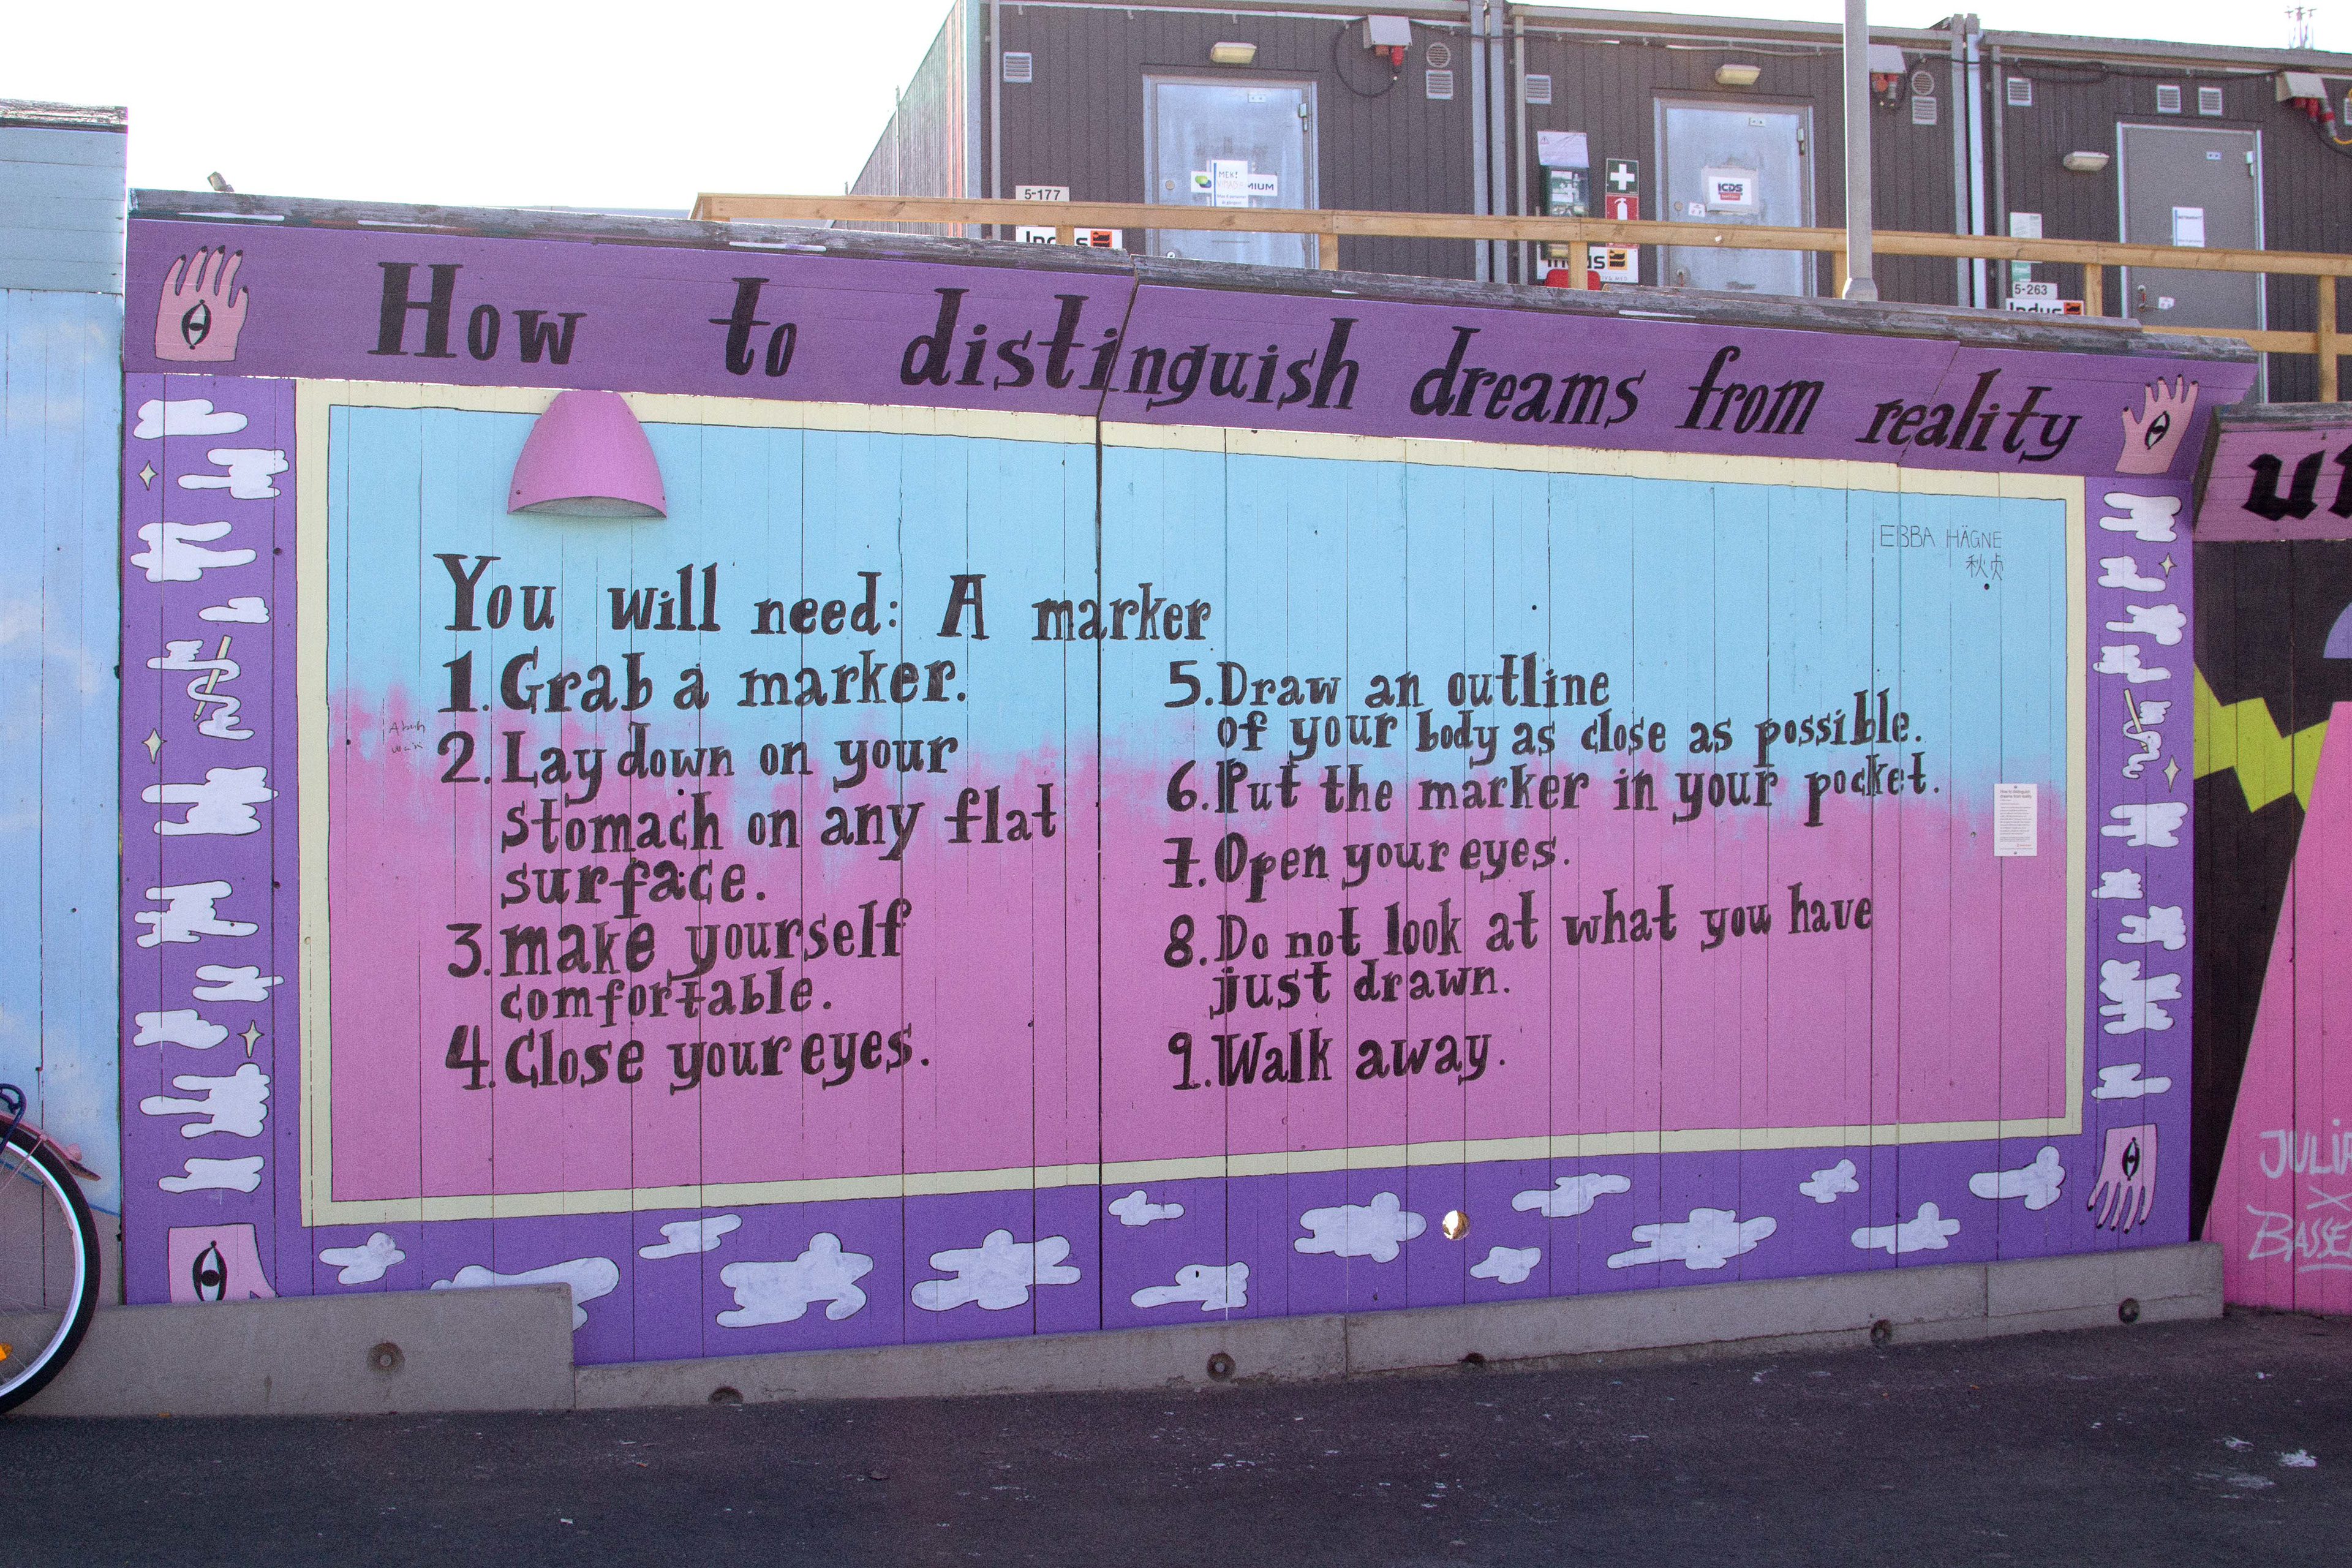 5-177
Indus
MEKI
MIUM
ICDS
Indus
5-263
Indus
How to distinguish dreams from reality
EBBA HÄGNE
You will need: A marker
1. Grab a marker.
2. Lay down on your
stomach on any flat
surface.
3. make yourself
comfortable.
4. Close your eyes.
5. Draw an outline
of your body as close as possible.
6. Put the marker in your pocket.
7. Open your eyes.
8. Do not look at what you have
just drawn.
9. Walk away.
How to distinguish
dreams from reality
JULIA
X
BASSE